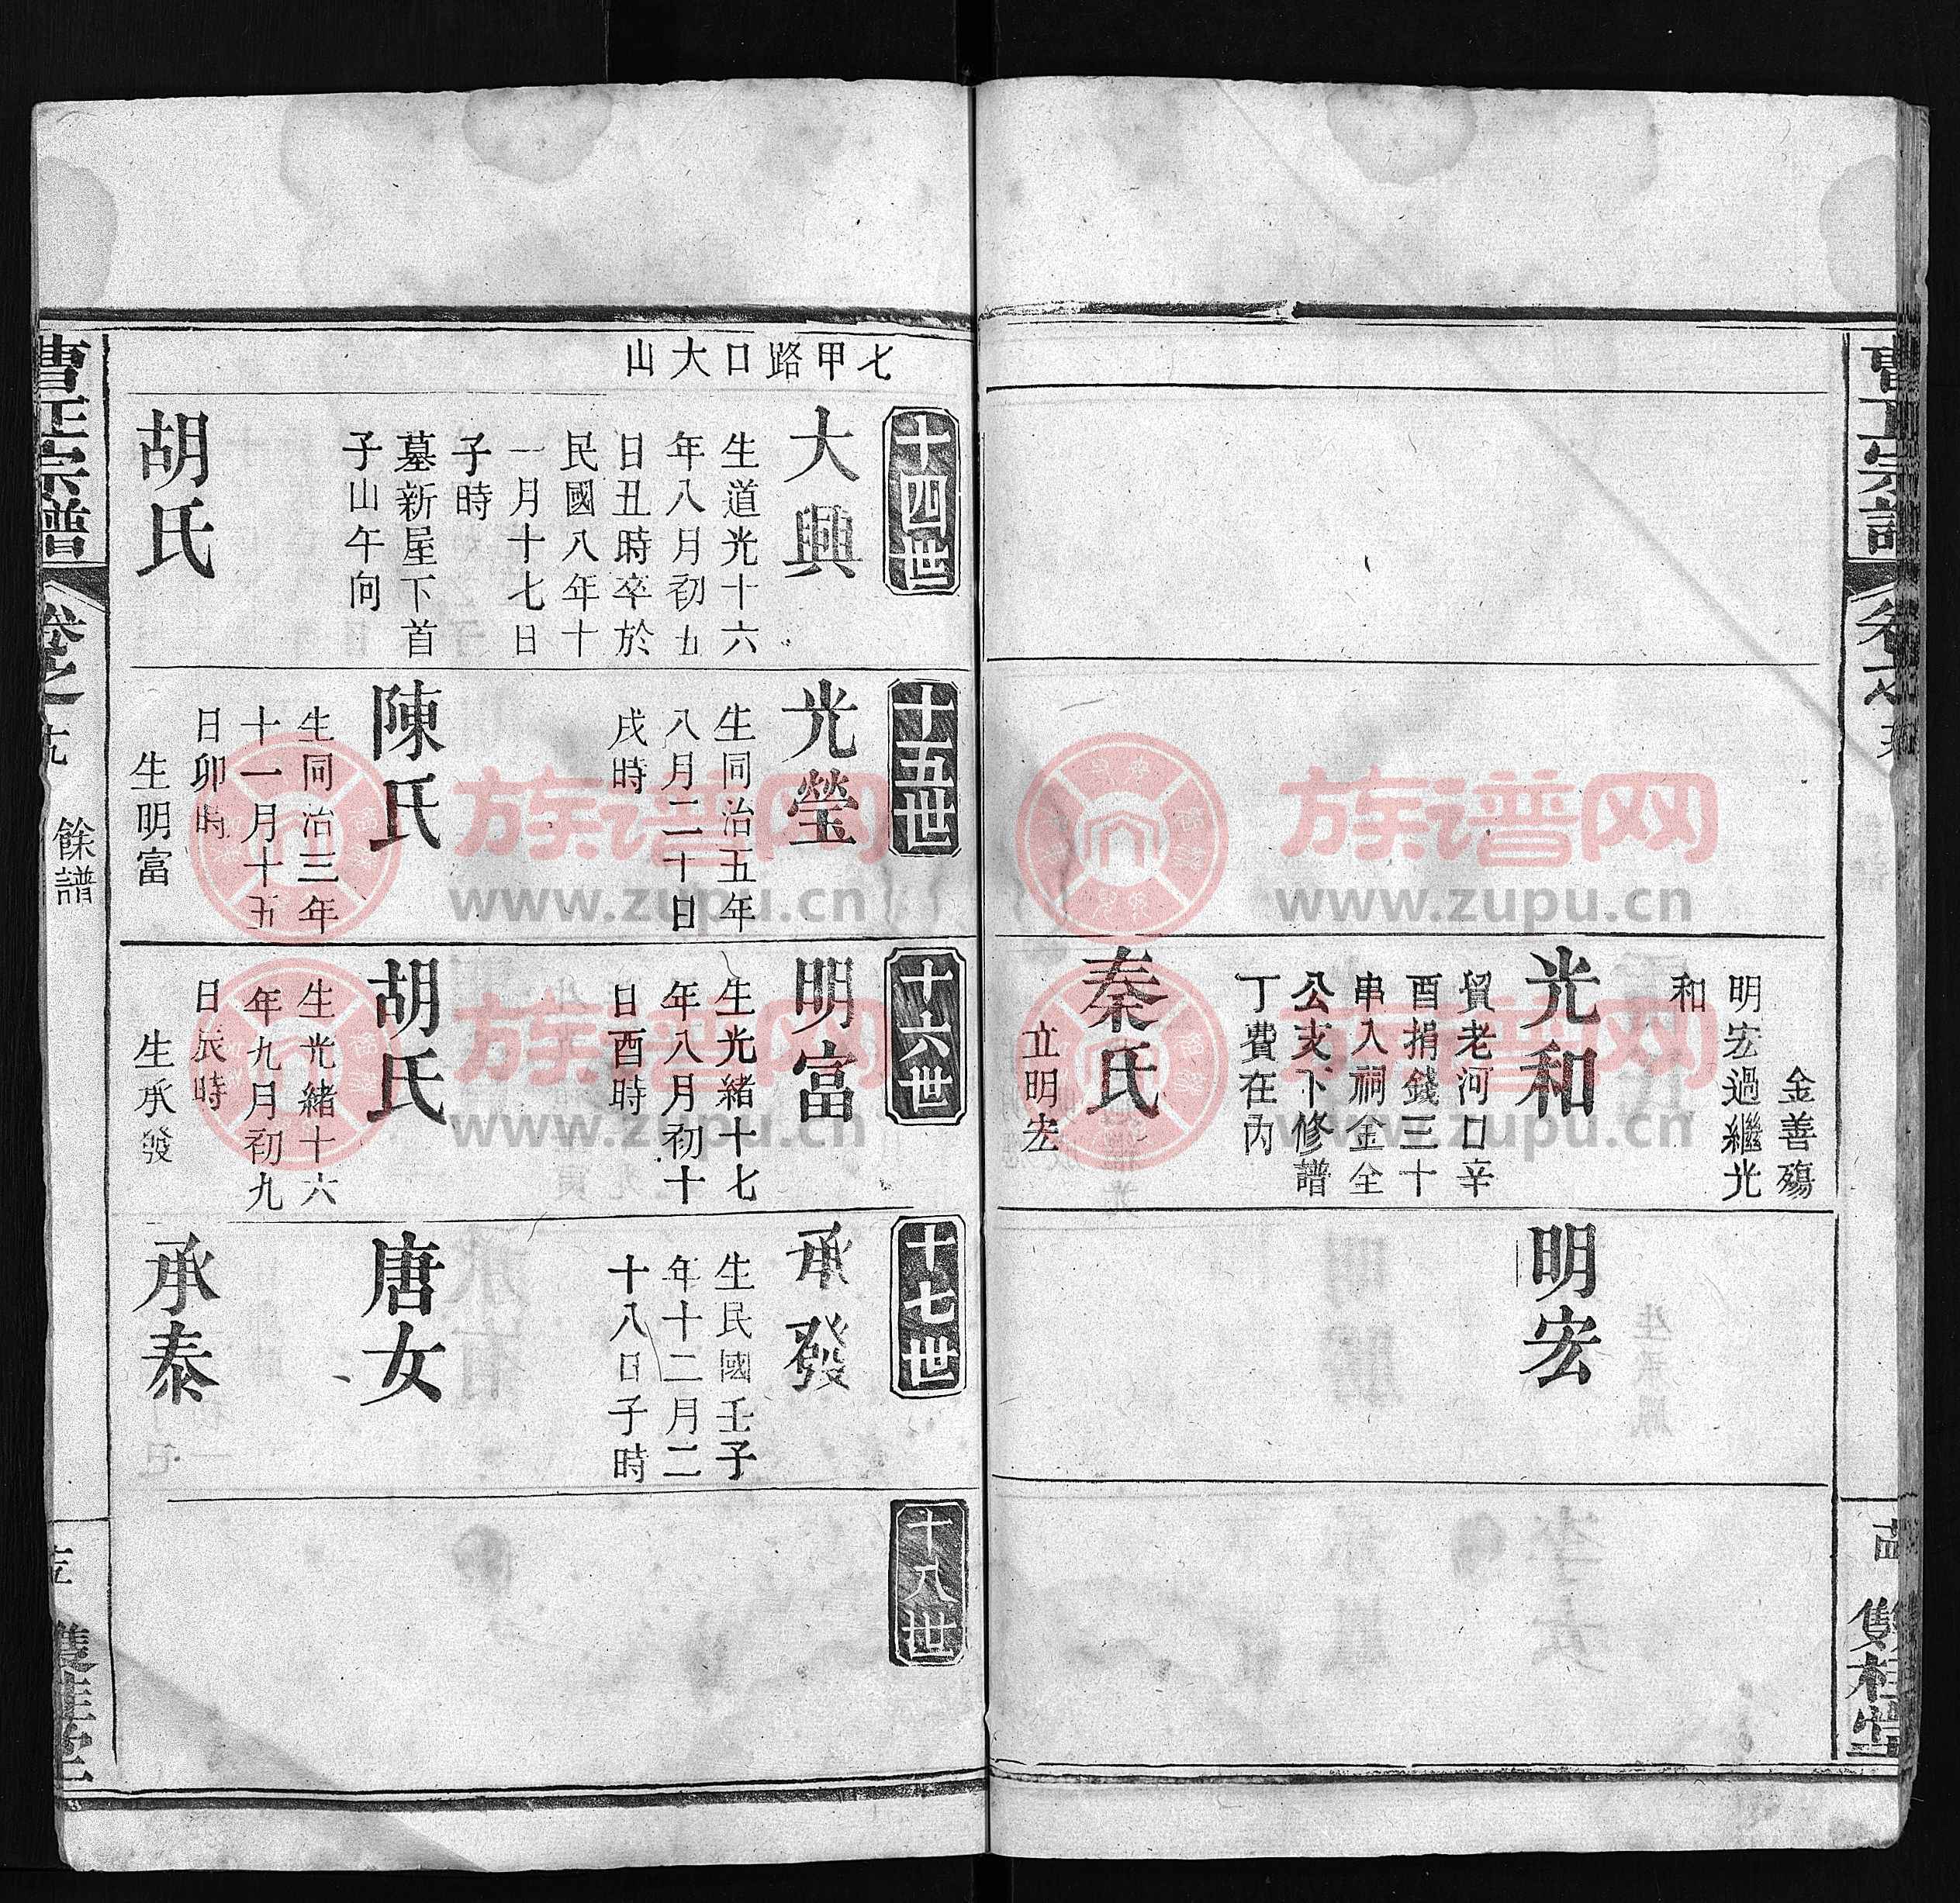 曹氏宗譜
卷之
雙桂堂
金善殤
明宏過繼光
和
光和
貿老河口辛
酉捐錢三十
串入祠金全
公支下修譜
丁費在內
秦氏
立明宏
明宏
七甲路口大山
十四世
大興
生道光十六
年八月初五
日丑時卒於
民國八年十
一月十七日
子時
墓新屋下首
子山午向
胡氏
十五世
光瑩
生同治五年
八月二十日
戌時
陳氏
生同治三年
十一月十五
日卯時
生明富
十六世
明富
生光緒十七
年八月初十
日酉時
胡氏
生光緒十六
年九月初九
日辰時
生承發
十七世
承發
生民國壬子
年十二月二
十八日子時
唐女
承泰
十八世
曹氏宗譜
卷之
餘譜
雙桂堂
族谱网
www.zupu.cn
族谱网
www.zupu.cn
族谱网
www.zupu.cn
族谱网
www.zupu.cn